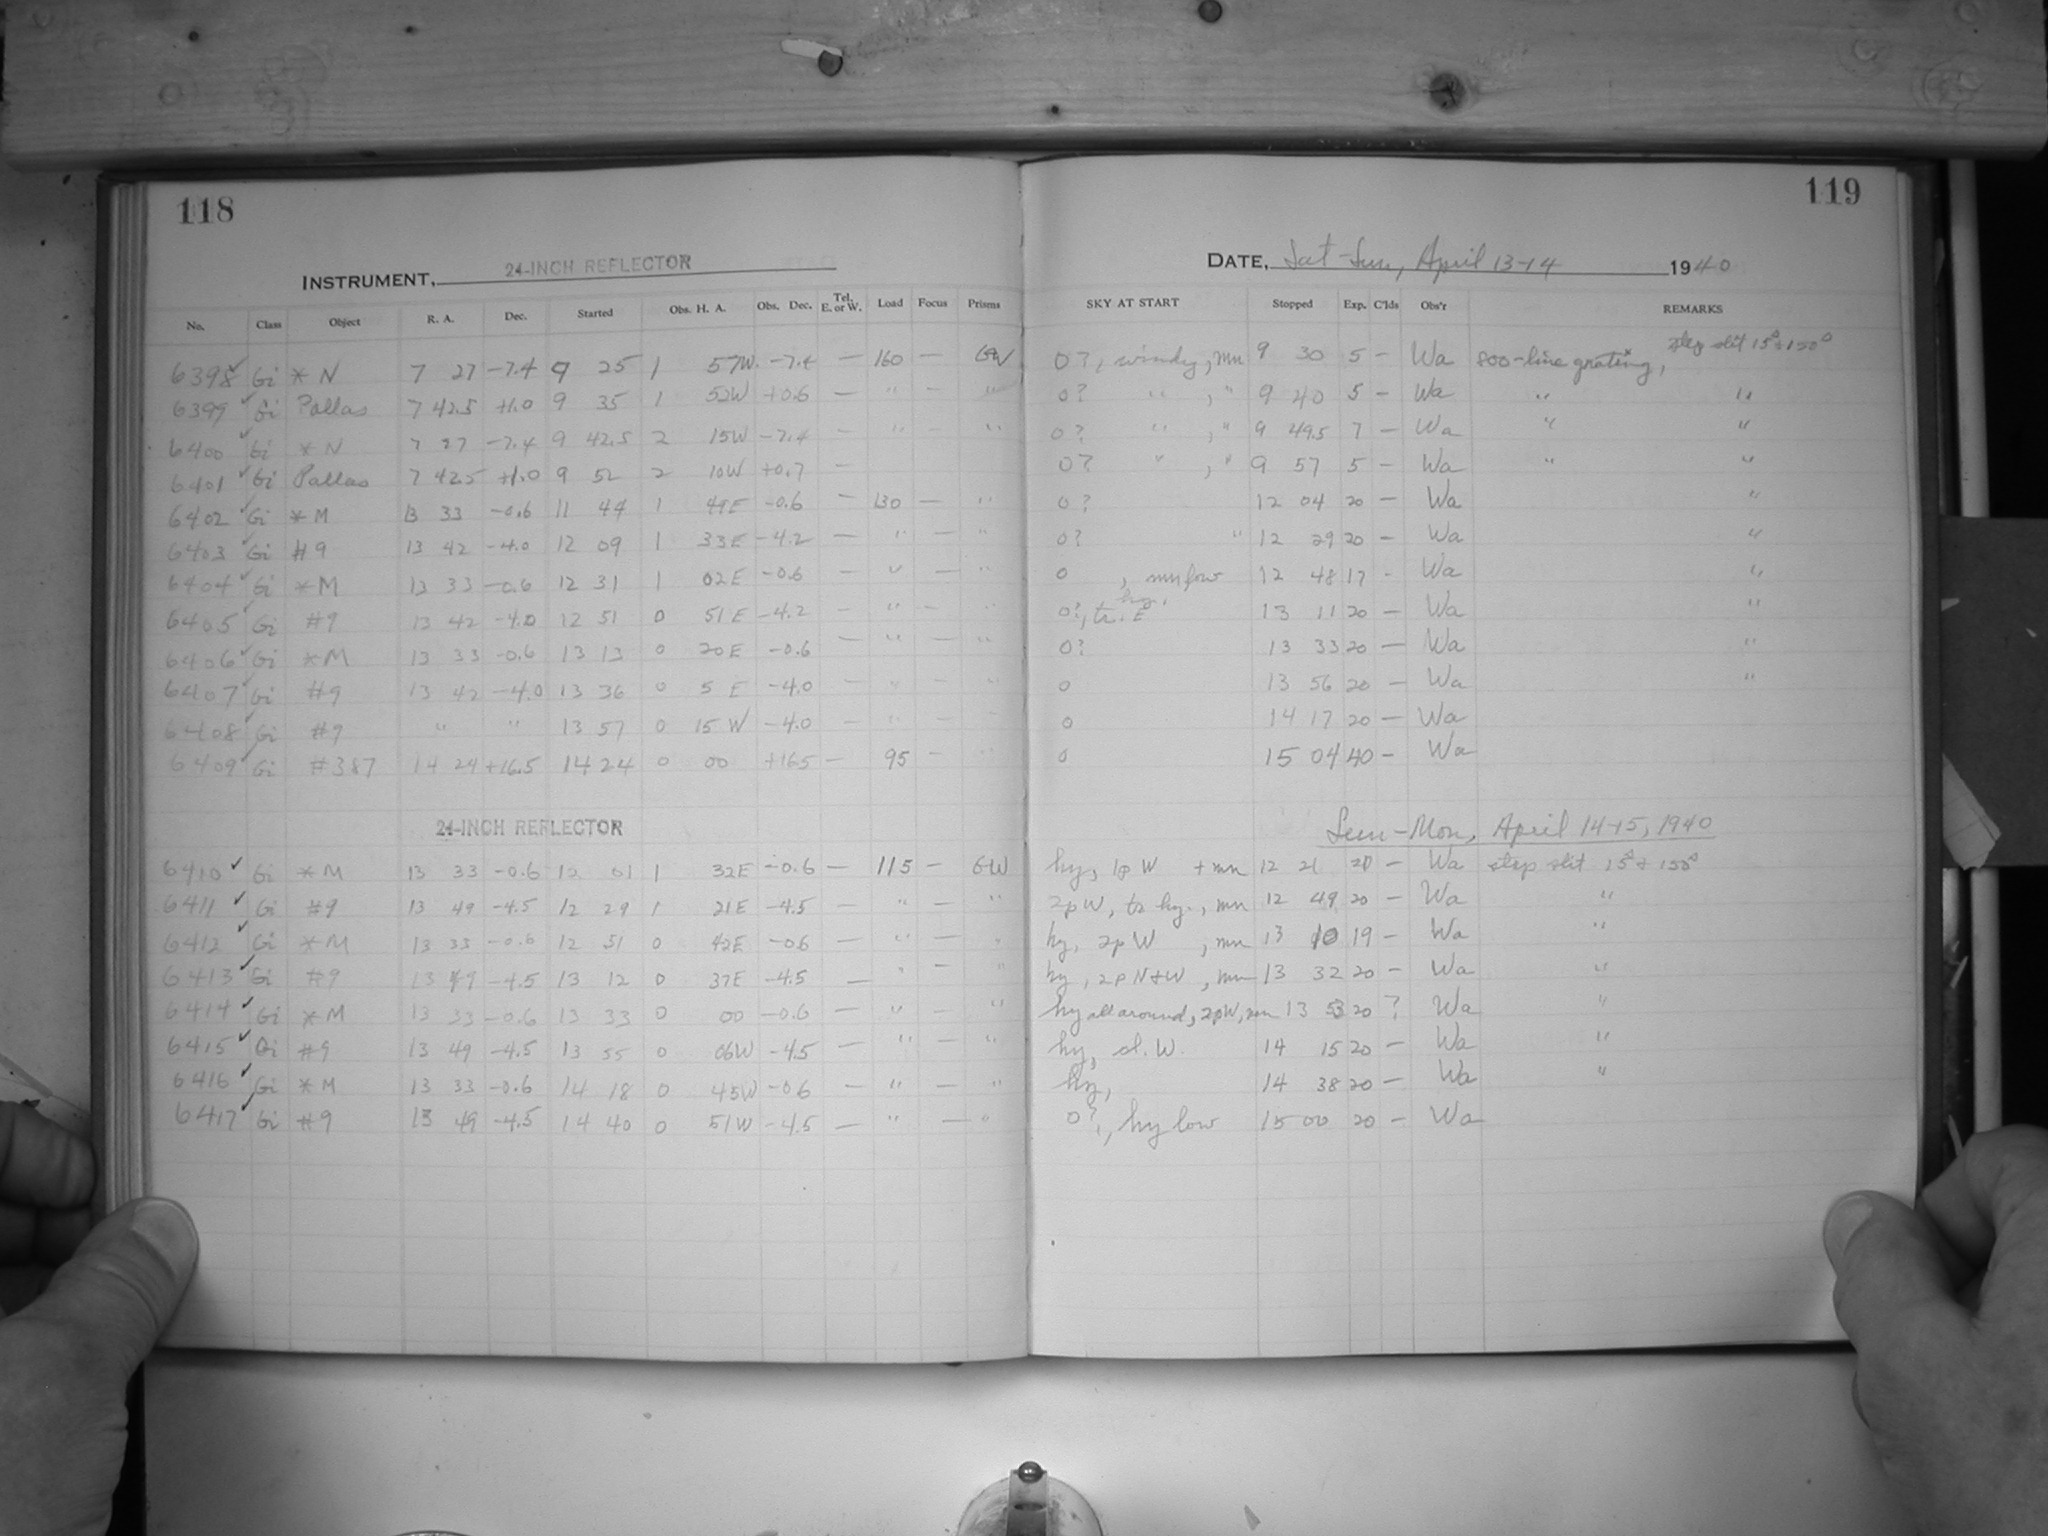 118
119
INSTRUMENT, 24-INCH REFLECTOR
DATE, Sat-Sun, April 13-14 1940
No. Class Object R. A. Dec. Started Obs. H. A. Obs. Dec. Tel. E. or W. Load Focus Prisms SKY AT START Stopped Exp. C'lds Obs'r REMARKS
step slit 15° & 150°
6398 ✓ Gi * N 7 27 -7.4 9 25 1 57W. -7.4 — 160 — GW 0?, windy, mn 9 30 5 — Wa 800-line grating,
6399 ✓ Gi Pallas 7 42.5 +1.0 9 35 1 52W +0.6 — " — " 0? " , " 9 40 5 — Wa " "
6400 ✓ Gi * N 7 27 -7.4 9 42.5 2 15W -7.4 — " — " 0? " , " 9 49.5 7 — Wa " "
6401 ✓ Gi Pallas 7 42.5 +1.0 9 52 2 10W +0.7 — 0? " , " 9 57 5 — Wa " "
6402 ✓ Gi * M 13 33 -0.6 11 44 1 49E -0.6 — 130 — " 0? 12 04 20 — Wa "
6403 ✓ Gi #9 13 42 -4.0 12 09 1 33E -4.2 — " — " 0? " 12 29 20 — Wa "
6404 ✓ Gi * M 13 33 -0.6 12 31 1 02E -0.6 — " — " 0 , mn low 12 48 17 - Wa "
6405 ✓ Gi #9 13 42 -4.0 12 51 0 51E -4.2 — " — " 0?, tr. hy. E 13 11 20 — Wa "
6406 ✓ Gi * M 13 33 -0.6 13 13 0 20E -0.6 — " — " 0? 13 33 20 — Wa "
6407 ✓ Gi #9 13 42 -4.0 13 36 0 5 E -4.0 — " — " 0 13 56 20 — Wa "
6408 ✓ Gi #9 " " 13 57 0 15 W -4.0 — " — " 0 14 17 20 — Wa
6409 ✓ Gi #387 14 24 +16.5 14 24 0 00 +16.5 — 95 — " 0 15 04 40 — Wa
24-INCH REFLECTOR
Sun-Mon, April 14-15, 1940
6410 ✓ Gi * M 13 33 -0.6 12 01 1 32E -0.6 — 115 — GW hy, 1p W + mn 12 21 20 — Wa step slit 15° & 150°
6411 ✓ Gi #9 13 49 -4.5 12 29 1 21E -4.5 — " — " 2pW, tr hy., mn 12 49 20 — Wa "
6412 ✓ Gi * M 13 33 -0.6 12 51 0 42E -0.6 — " — " hy, 2p W , mn 13 10 19 — Wa "
6413 ✓ Gi #9 13 49 -4.5 13 12 0 37E -4.5 — " — " hy, 2p N&W , mn 13 32 20 — Wa "
6414 ✓ Gi * M 13 33 -0.6 13 33 0 00 -0.6 — " — " hy all around, 2pW, mn 13 53 20 ? Wa "
6415 ✓ Gi #9 13 49 -4.5 13 55 0 06W -4.5 — " — " hy, cl. W. 14 15 20 — Wa "
6416 ✓ Gi * M 13 33 -0.6 14 18 0 45W -0.6 — " — " hy, 14 38 20 — Wa "
6417 ✓ Gi #9 13 49 -4.5 14 40 0 51W -4.5 — " — " 0?, hy low 15 00 20 — Wa